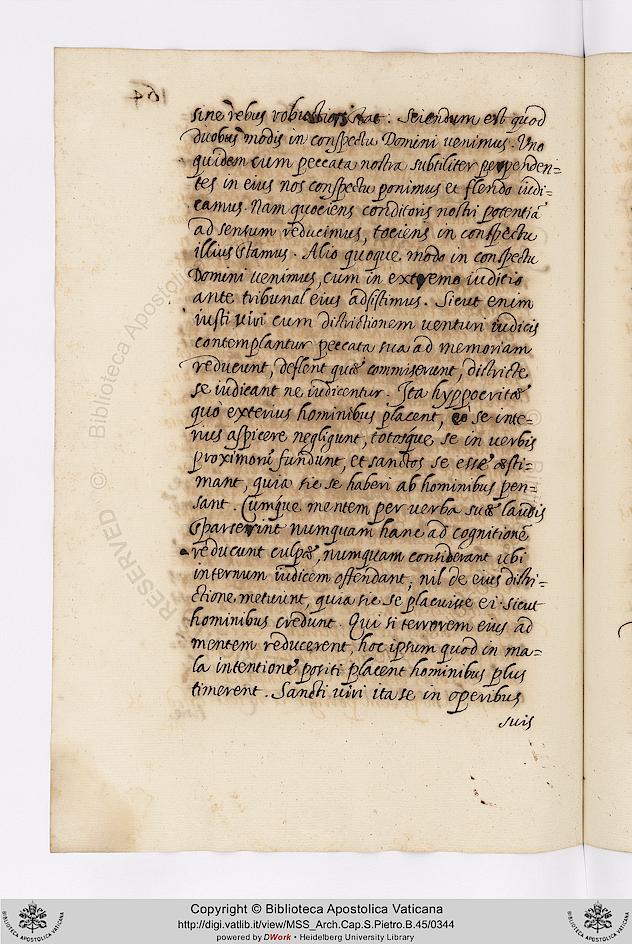 164
sine rebus robustior stat: Sciendum est quod
duobus modis in conspectu Domini uenimus. Uno
quidem cum peccata nostra subtiliter perpenden=
tes in eius nos conspectu ponimus et flendo iudi=
camus. Nam quociens conditoris nostri potentiã
ad sensum reducimus, tociens in conspectu
illius stamus. Alio quoque modo in conspectu
Domini uenimus, cum in extremo iudicio
ante tribunal eius adsistimus. Sicut enim
iusti uiri cum districtionem uenturi iudicis
contemplantur peccata sua ad memoriam
reducunt, deflent quæ commiserunt, districte
se iudicant ne iudicentur. Ita hyppocritæ
quò exterius hominibus placent, eò se inte=
rius aspicere negligunt, totosque se in uerbis
proximorũ fundunt, et sanctos se esse æsti=
mant, quia sic se haberi ab hominibus pen=
sant. Cumque mentem per uerba suæ laudis
sparserint numquam hanc ad cognitionẽ
reducunt culpæ, numquam considerant ubi
internum iudicem offendant, nil de eius distri=
ctione metuunt, quia sic se placuisse ei sicut
hominibus credunt. Qui si terrorem eius ad
mentem reducerent, hoc ipsum quod in ma=
la intentione positi placent hominibus plus
timerent. Sancti uiri ita se in operibus
suis
RESERVED © Biblioteca Apostolica
Copyright © Biblioteca Apostolica Vaticana
http://digi.vatlib.it/view/MSS_Arch.Cap.S.Pietro.B.45/0344
powered by DWork • Heidelberg University Library